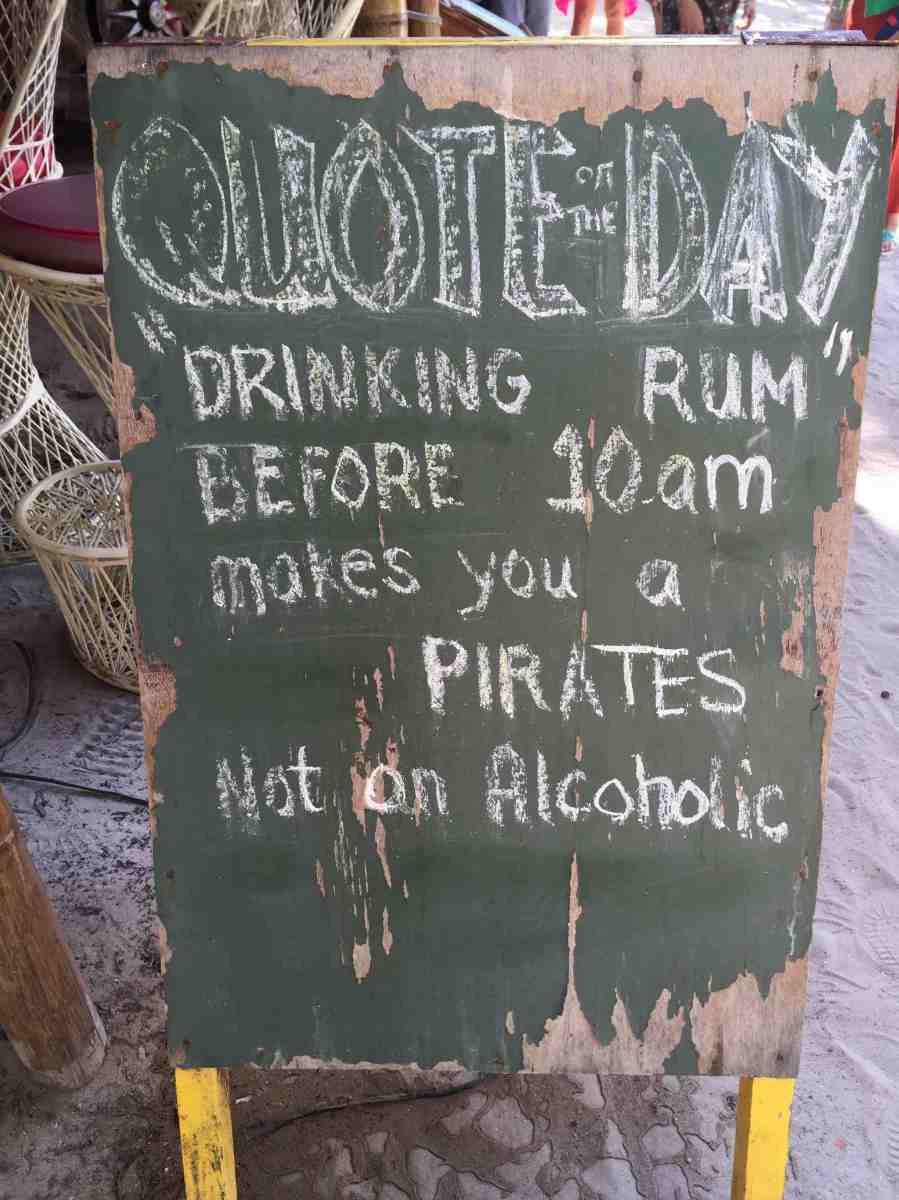 QUOTE OF THE DAY
"DRINKING RUM"
BEFORE 10am
makes you a
PIRATES
Not an Alcoholic